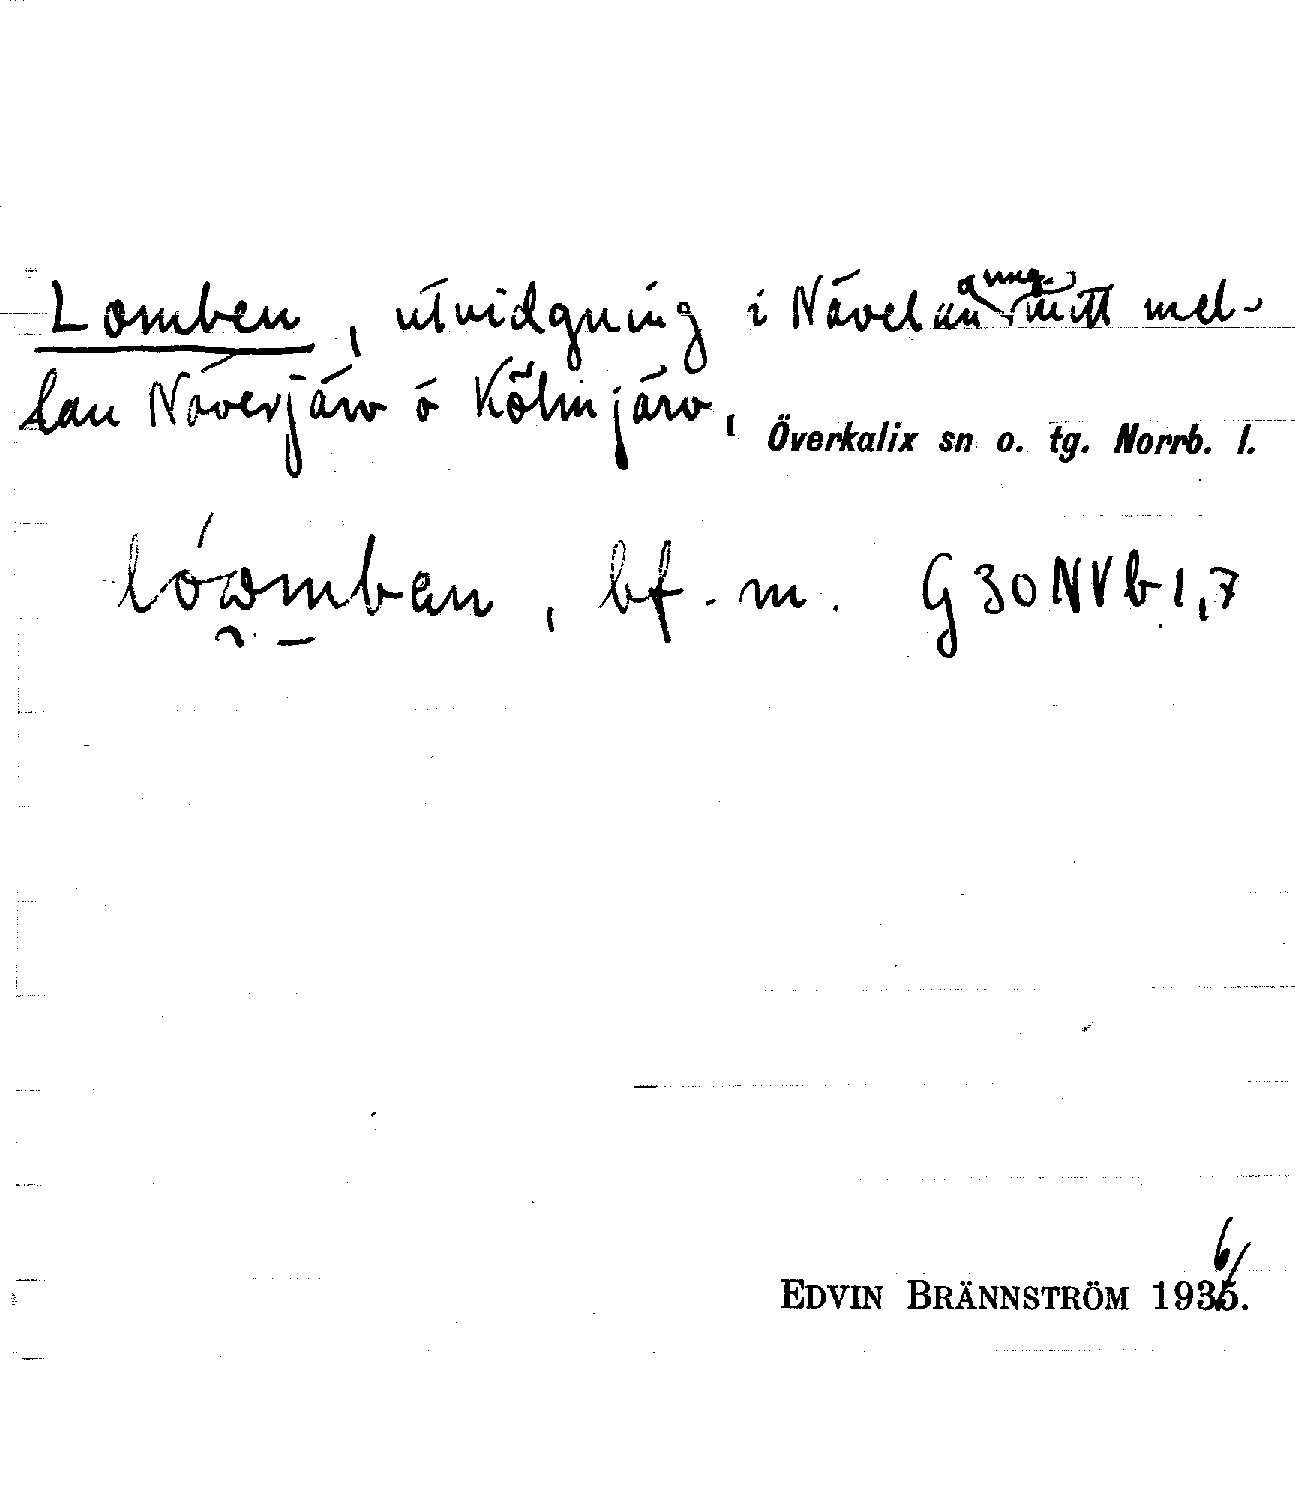 Lomben, utvidgning i Nävelån ung. mitt mel-
lan Näverjärv o Kölmjärv,
Överkalix sn o. tg. Norrb. l.
bf. m. G30NVb1,7
EDVIN BRÄNNSTRÖM 1936.